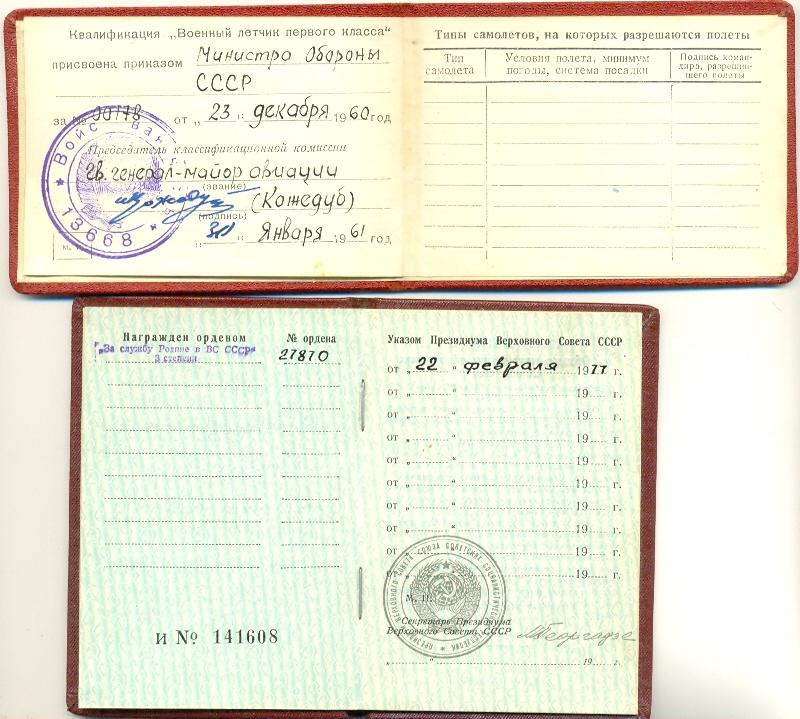 Квалификация „Военный летчик первого класса“
присвоена приказом Министра Обороны
СССР
за № 00178 от „ 23 “ декабря 1960 год
Председатель классификационной комиссии
гв. генерал-майор авиации
(звание)
(Кожедуб)
(подпись)
„ “ Января 1961 год
Войс
13668
Типы самолетов, на которых разрешаются полеты
Тип самолета
Условия полета, минимум погоды, система посадки
Подпись коман-
дира, разрешив-
шего полеты
Награжден орденом № ордена
„За службу Родине в ВС СССР“ 27870
3 степени
И № 141608
Указом Президиума Верховного Совета СССР
от „ 22 “ февраля 1977 г.
от „ “ 19 г.
от „ “ 19 г.
от „ “ 19 г.
от „ “ 19 г.
от „ “ 19 г.
от „ “ 19 г.
от „ “ 19 г.
от „ “ 19 г.
от „ “ 19 г.
М. П.
Секретарь Президиума
Верховного Совета СССР
МГеоргадзе
„ “ 19 г.